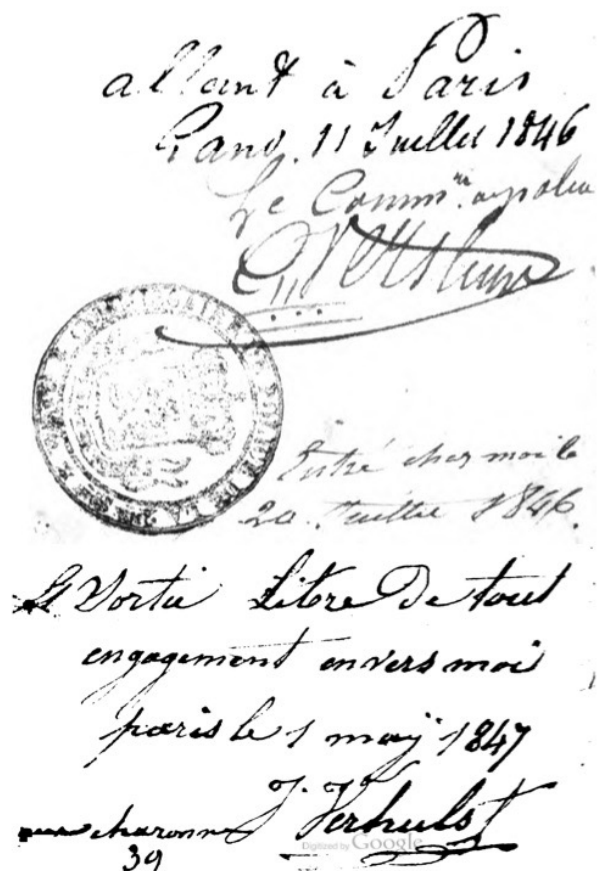 allant à Paris
Gand, 11 Juillet 1846
Le Comm.re de police
Entré chez moi le
20 Juillet 1846.
& Sortie Libre De tout
engagement envers moi
paris le 1 may 1847
J. Verhulst
rue charonne
39
Digitized by Google